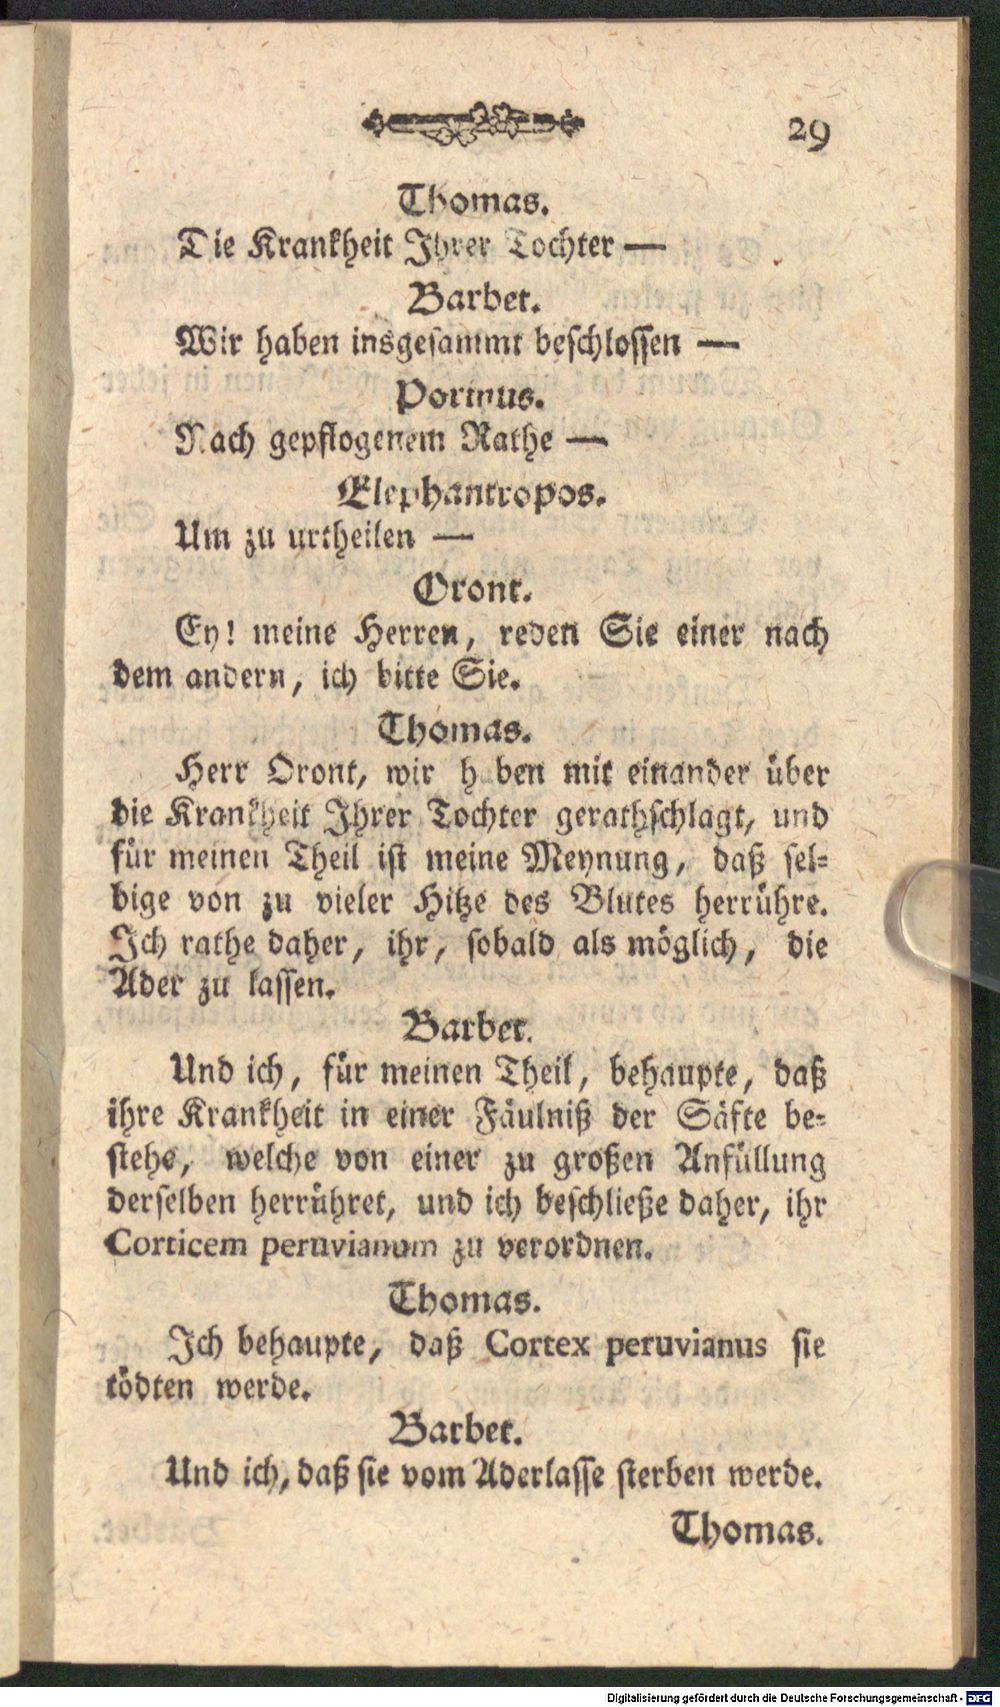 29
Thomas.
Die Krankheit Ihrer Tochter —
Barbet.
Wir haben insgesammt beschlossen —
Pormus.
Nach gepflogenem Rathe —
Elephantropos.
Um zu urtheilen —
Oront.
Ey! meine Herren, reden Sie einer nach
dem andern, ich bitte Sie.
Thomas.
Herr Oront, wir haben mit einander über
die Krankheit Ihrer Tochter gerathschlagt, und
für meinen Theil ist meine Meynung, daß sel-
bige von zu vieler Hitze des Blutes herrühre.
Ich rathe daher, ihr, sobald als möglich, die
Ader zu lassen.
Barbet.
Und ich, für meinen Theil, behaupte, daß
ihre Krankheit in einer Fäulniß der Säfte be-
stehe, welche von einer zu großen Anfüllung
derselben herrühret, und ich beschließe daher, ihr
Corticem peruvianum zu verordnen.
Thomas.
Ich behaupte, daß Cortex peruvianus sie
tödten werde.
Barbet.
Und ich, daß sie vom Aderlasse sterben werde.
Thomas.
Digitalisierung gefördert durch die Deutsche Forschungsgemeinschaft - DFG